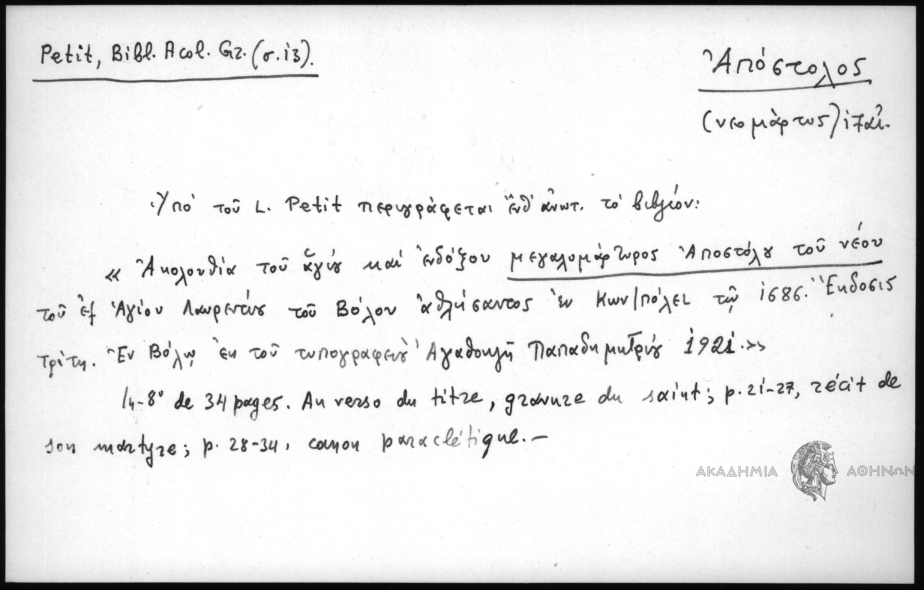 Petit, Bibl. Acol. Gr. (σ. 13).
Ἀπόστολος
(νεομάρτυς) 17 αἰ.
Ὑπὸ τοῦ L. Petit περιγράφεται ἔνθ' ἀνωτ. τὸ βιβλίον:
« Ἀκολουθία τοῦ ἁγίου καὶ ἐνδόξου μεγαλομάρτυρος Ἀποστόλου τοῦ νέου
τοῦ ἐξ Ἁγίου Λαυρεντίου τοῦ Βόλου ἀθλήσαντος ἐν Κων/πόλει τῷ 1686. Ἔκδοσις
τρίτη. Ἐν Βόλῳ ἐκ τοῦ τυπογραφείου Ἀγαθοκλῆ Παπαδημητρίου 1921.»
4-8° de 34 pages. Au verso du titre, gravure du saint; p. 21-27, récit de
son martyre; p. 28-34, canon paraclétique.—
ΑΚΑΔΗΜΙΑ ΑΘΗΝΩΝ